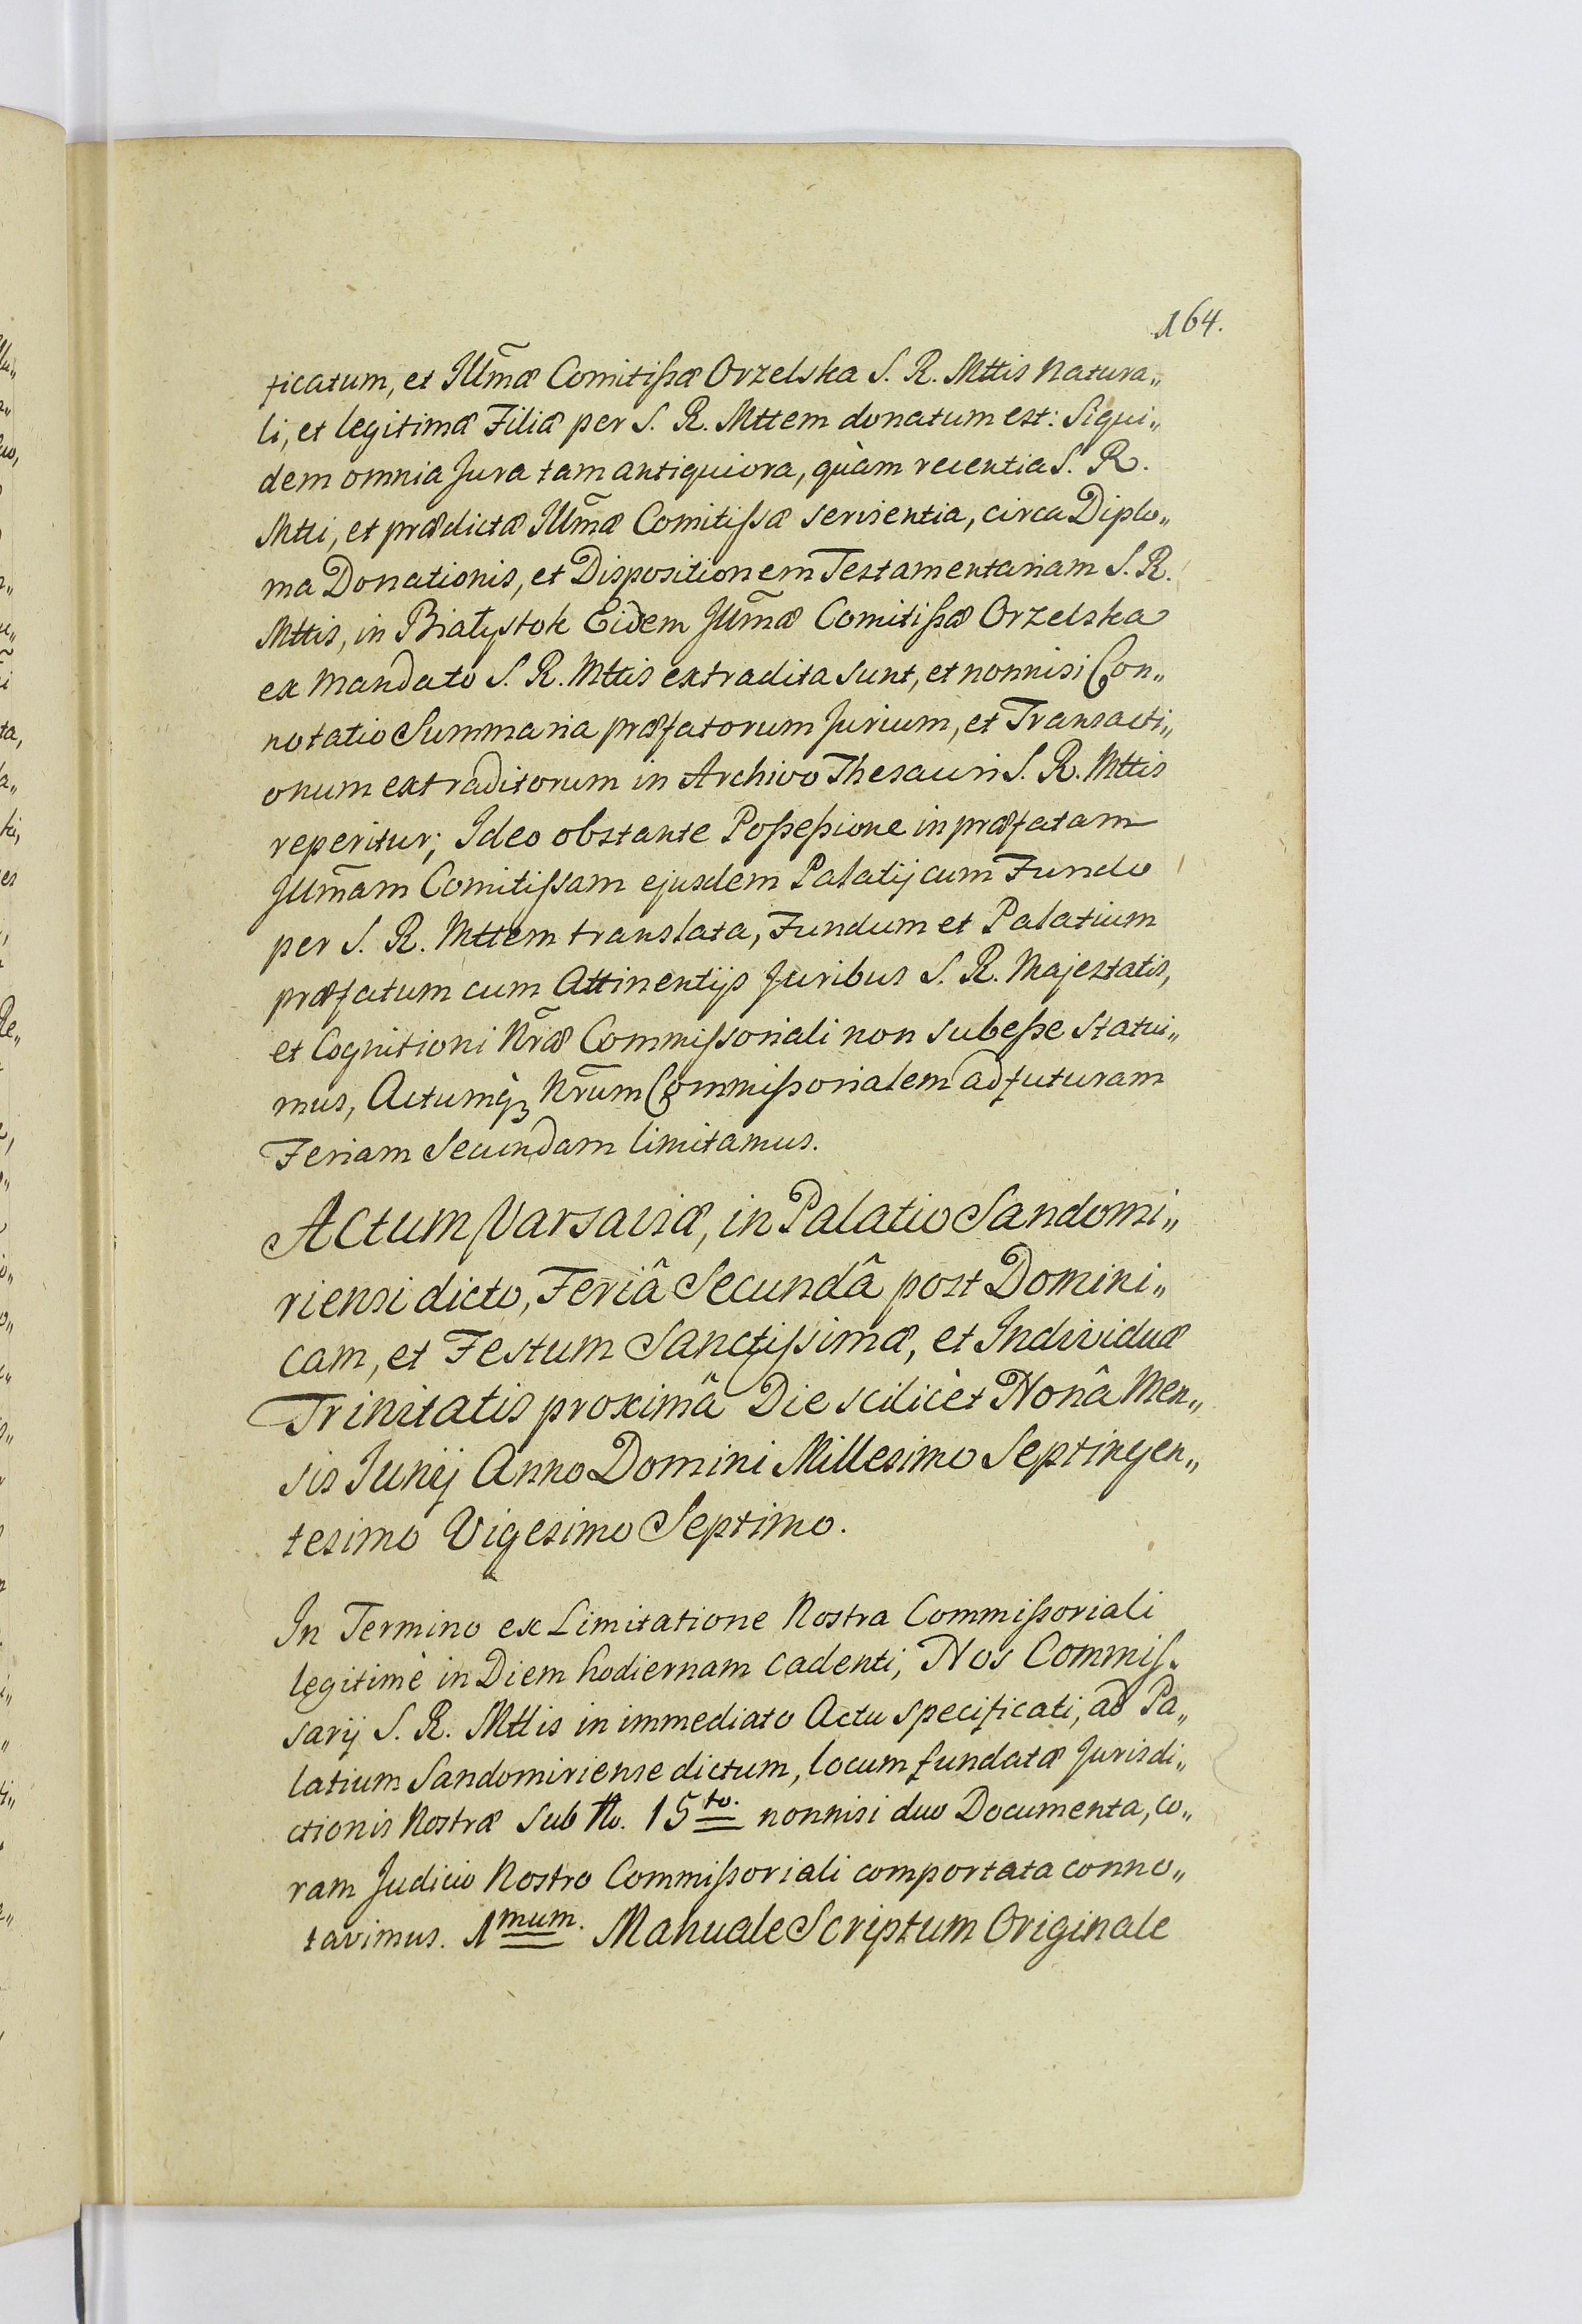 164.
ticatum, et Illm̃æ Comitißæ Orzelska S. R. Mttis Natura„
li, et legitimæ Filiæ per S. R. Mttem donatum est: Siqui„
dem omnia Jura tam antiquiora, quàm recentia S. R.
Mtti, et prædictæ Illm̃æ Comitißæ servientia, circa Diplo„
ma Donationis, et Dispositionem Testamentariam S. R.
Mttis, in Białystok Eidem Illm̃æ Comitißæ Orzelska
ex Mandato S. R. Mttis extradita sunt, et nonnisi Con„
notatio Summaria præfatorum Jurium, et Transacti„
onum extraditorum in Archivo Thesauri S. R. Mttis
reperitur; Ideo obstante Poßeßione in præfatam
Illm̃am Comitißam ejusdem Palatij cum Fundo
per S. R. Mttem translata, Fundum et Palatium
præfatum cum Attinentijs Juribus S. R. Majestatis,
et Cognitioni Nr̃æ Commißoriali non subeße statui„
mus, Actumq̀ꝫ Nr̃um Commißorialem ad futuram
Feriam Secundam limitamus.
Actum Varsaviæ, in Palatio Sandomi„
riensi dicto, Feriâ Secundâ post Domini„
cam, et Festum Sanctißimæ, et Individuæ
Trinitatis proximâ Die scilicèt Nonâ Men„
sis Junij Anno Domini Millesimo Septingen„
tesimo Vigesimo Septimo.
In Termino ex Limitatione Nostra Commißoriali
legitimè in Diem hodiernam cadenti, Nos Commis„
sarij S. R. Mttis in immediato Actu specificati, ad Pa„
latium Sandomiriense dictum, locum fundatæ Jurisdi„
ctionis Nostræ sub No. 15to. nonnisi duo Documenta, co„
ram Judicio Nostro Commißoriali comportata conno„
tavimus. 1mum. Manuale Scriptum Originale